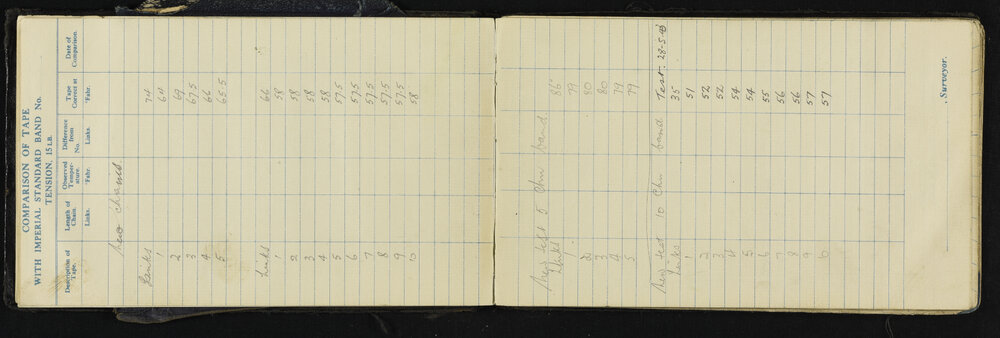 COMPARISON OF TAPE
WITH IMPERIAL STANDARD BAND No.
TENSION, 15 LB.
Description of Tape. Length of Chain. Links. Observed Temperature. °Fahr. Difference from No. Links. Tape Correct at °Fahr. Date of Comparison.
new chains
Links 74
1 64
2 69
3 67.5
4 66
5 65.5
Links 66
1 58
2 58
3 58
4 58
5 57.5
6 57.5
7 57.5
8 57.5
9 57.5
10 58
New test 5 Chn band
Links 86°
1 79
2 80
3 80
4 79
5 79
New test 10 Chn band Test. 28-5-
Links 35
1 51
2 52
3 52
4 54
5 54
6 55
7 56
8 56
9 57
10 57
Surveyor.